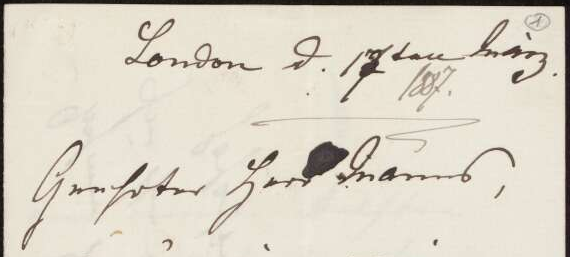 London d. 17ten März.
1887.
Geehrter Herr Manns,